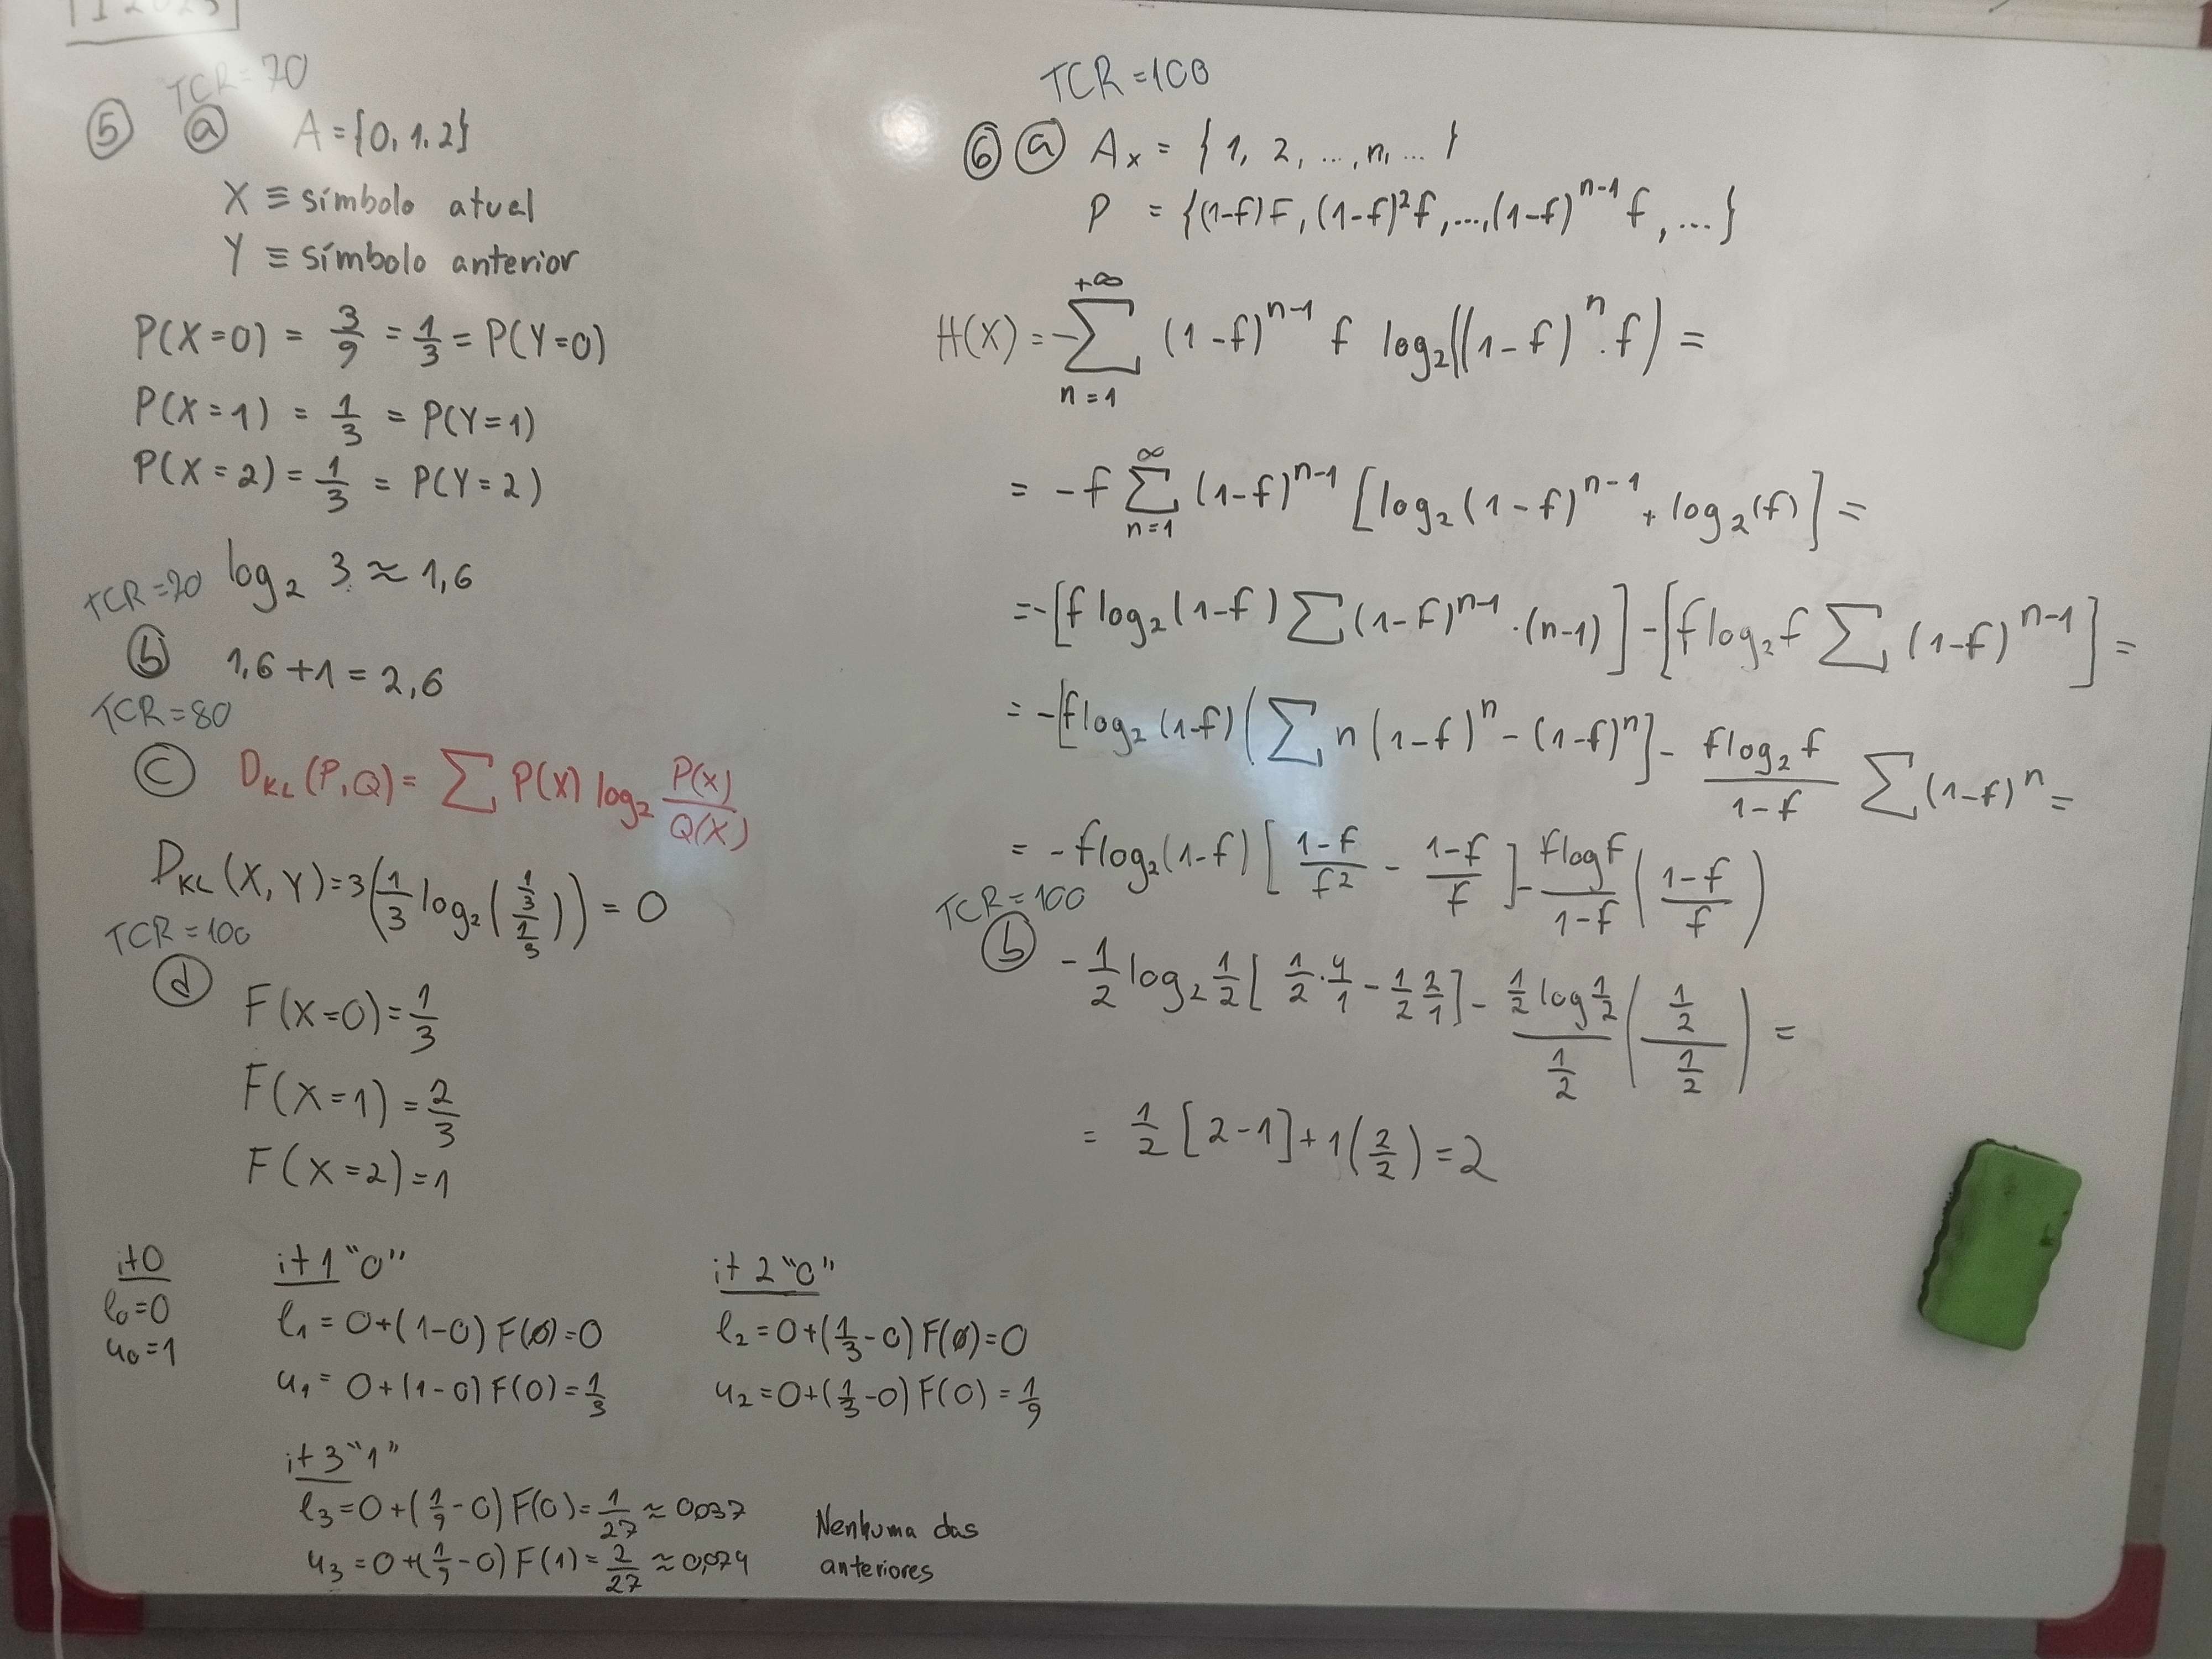 TCR=70
⑤ ⓐ A={0,1.2}
X ≡ símbolo atual
Y ≡ símbolo anterior
P(X=0) = 3/9 = 1/3 = P(Y=0)
P(X=1) = 1/3 = P(Y=1)
P(X=2) = 1/3 = P(Y=2)
log₂ 3 ≈ 1,6
TCR=70
ⓑ 1,6+1=2,6
TCR=80
ⓒ D_KL(P,Q) = ∑ P(X) log₂ P(X)/Q(X)
D_KL(X,Y)=3(1/3 log₂((1/3)/(1/3))) = 0
TCR=100
ⓓ F(X=0)=1/3
F(X=1)=2/3
F(X=2)=1
it0
l₀=0
u₀=1
it 1 "0"
l₁ = 0+(1-0) F(∅)=0
u₁ = 0+(1-0) F(0)=1/3
it 2 "0"
l₂=0+(1/3-0) F(∅)=0
u₂=0+(1/3-0) F(0)=1/9
it 3 "1"
l₃=0+(1/9-0) F(0)=1/27≈0,037
u₃=0+(1/9-0) F(1)=2/27≈0,074
Nenhuma das
anteriores
TCR=100
⑥ ⓐ Aₓ = {1, 2, ..., n, ...}
P = {(1-f)F, (1-f)²f, ..., (1-f)ⁿ⁻¹ f, ...}
H(X) = -∑_{n=1}^{+∞} (1-f)ⁿ⁻¹ f log₂((1-f)ⁿ.f) =
= -f ∑_{n=1}^{∞} (1-f)ⁿ⁻¹ [log₂(1-f)ⁿ⁻¹ + log₂(f)] =
=-[f log₂(1-f) ∑(1-F)ⁿ⁻¹·(n-1)]-[f log₂f ∑ (1-f)ⁿ⁻¹] =
= -[f log₂(1-f)(∑ n(1-f)ⁿ - (1-f)ⁿ] - f log₂ f/(1-f) ∑(1-f)ⁿ =
= -f log₂(1-f) [(1-f)/f² - (1-f)/f] - f log f/(1-f) ((1-f)/f)
TCR=100
ⓑ -1/2 log₂ 1/2 [1/2·4/1 - 1/2 2/1] - (1/2 log 1/2)/(1/2) ((1/2)/(1/2)) =
= 1/2 [2-1] + 1(2/2) = 2